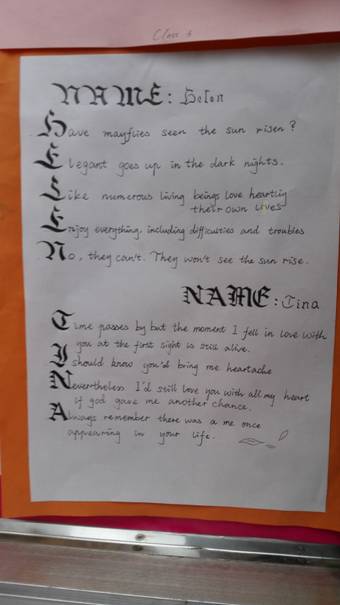 Class 6
NAME: Helen
Have mayflies seen the sun risen?
Elegant goes up in the dark nights.
Like numerous living beings love heartily
their own lives
Enjoy everything, including difficulties and troubles
No, they can't. They won't see the sun rise.
NAME: Tina
Time passes by but the moment I fell in love with
you at the first sight is still alive.
I should know you'd bring me heartache
Nevertheless I'd still love you with all my heart
if god gave me another chance.
Always remember there was a me once
appearing in your life.